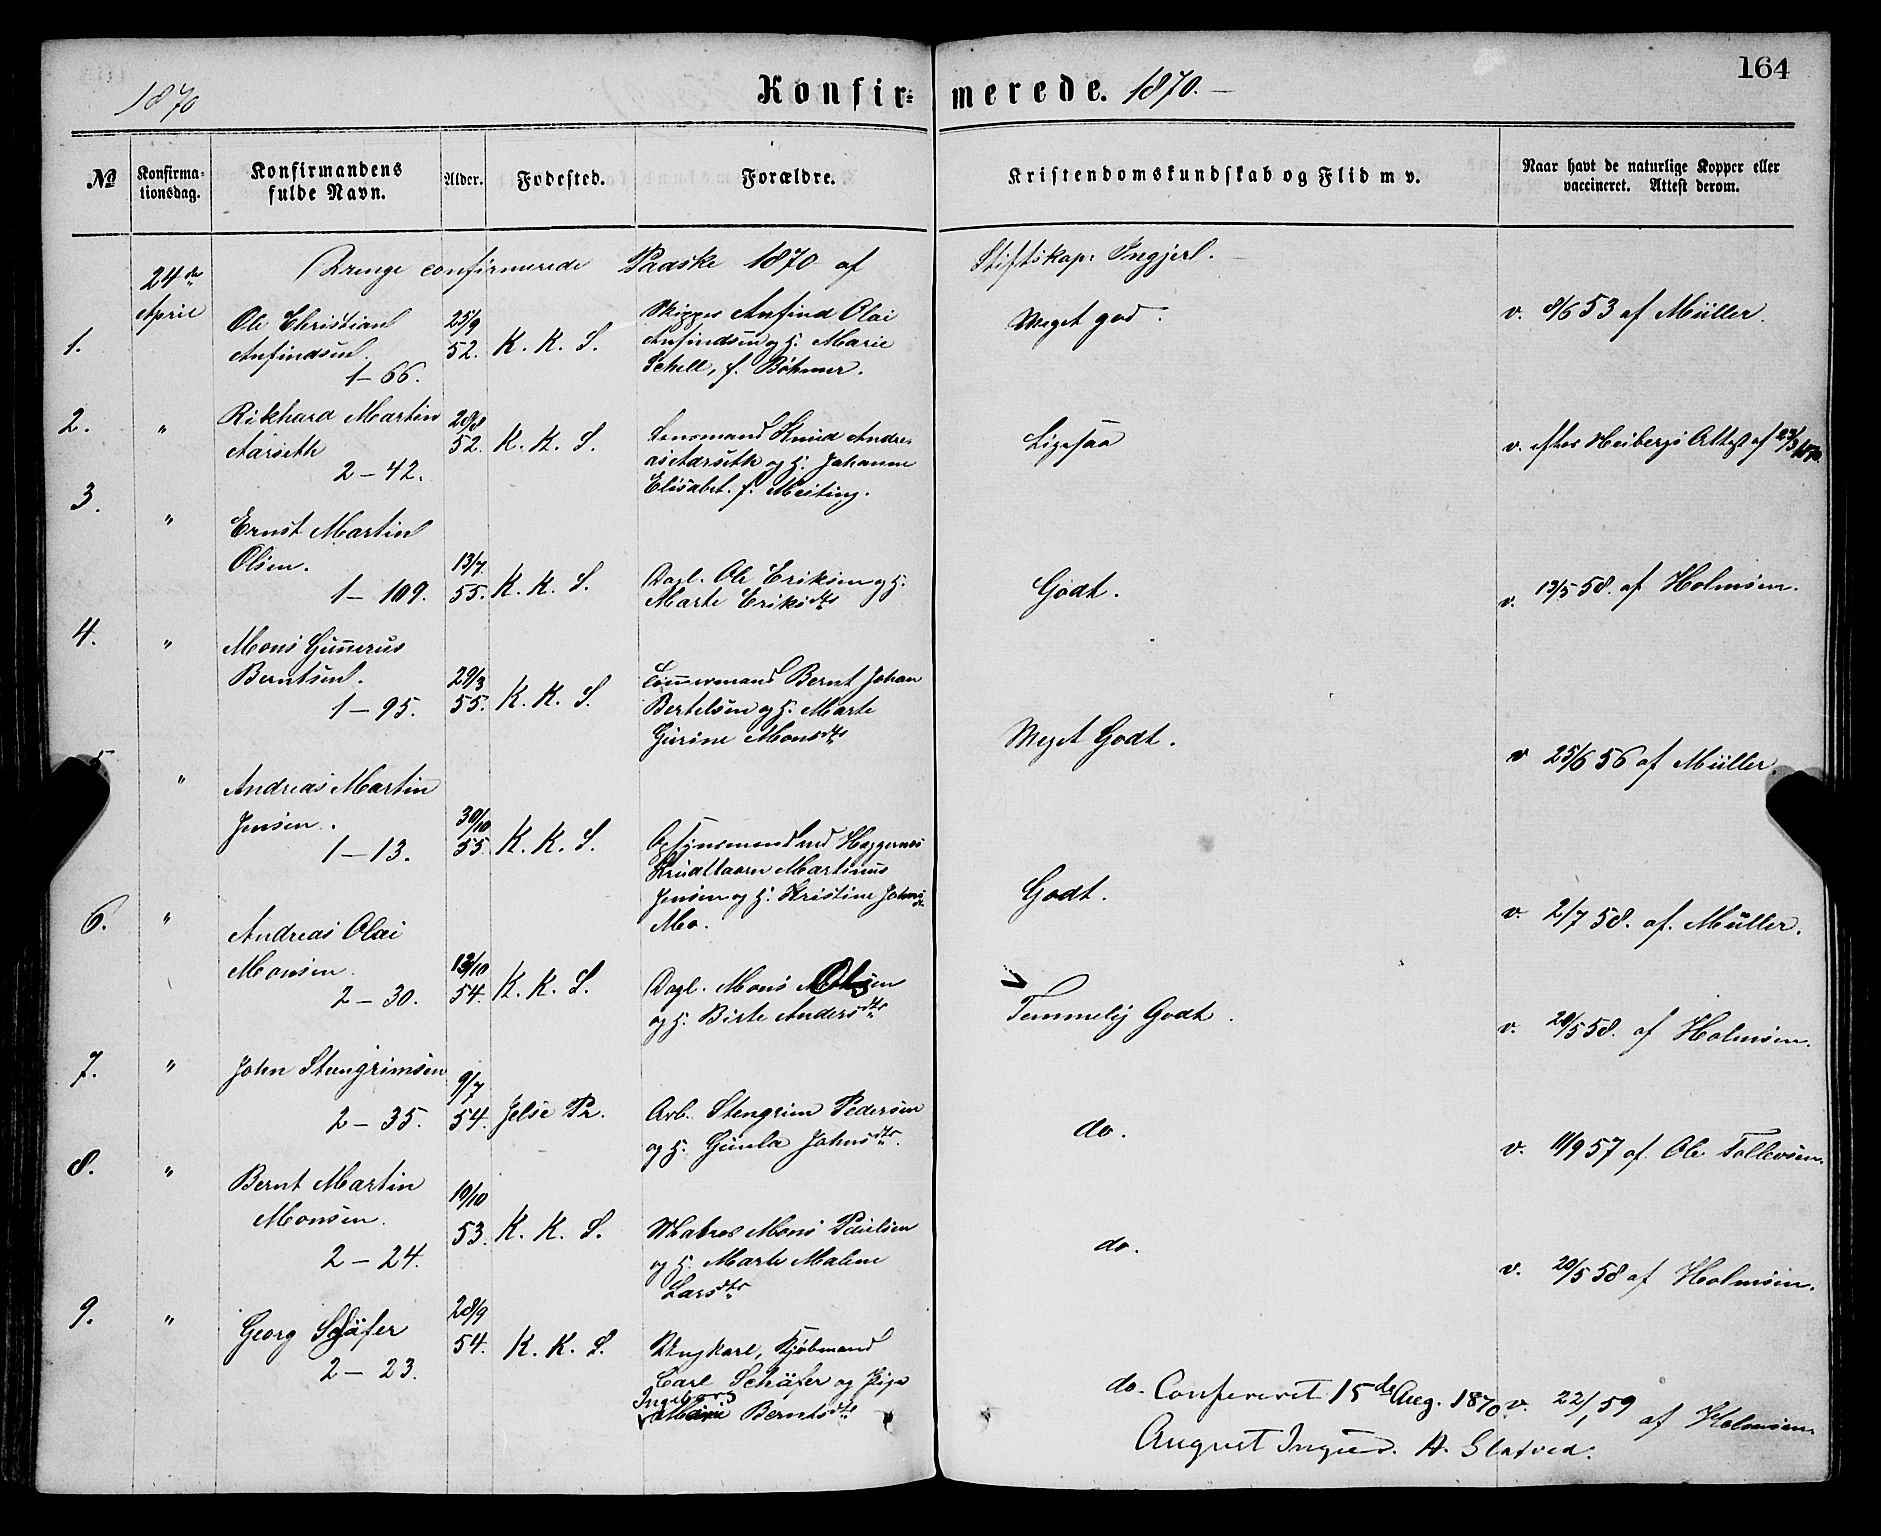 164
1870
Konfir= merede. 1870.
№
Konfirma=
tionsdag.
Konfirmandens
fulde Navn.
Alder.
Fodested.
Forældre.
Kristendomskundskab og Flid m v.
Naar havt de naturlige Kopper eller
vaccineret. Attest derom.
Drenge confirmerede Paaske 1870 af Stiftskap:
24de
April
1.
Ole Christian
Anfindsen
1-66.
25/9
52.
K. K. S.
Skipper Anfind Olai
Anfindsen og H. Marie
Schell, f. Bøhmer.
Meget god.
v. 8/6 53 af Müller.
2.
"
Rikhard Martin
Aarseth
2-42.
52.
K. K. S.
Lensmand Knud Andre
as Aarseth og H. Johanne
Elisabet. f. Meiting.
Ligesaa
v. efter Heibergs Attest af
3.
"
Ernst Martin
Olsen.
1-109.
13/7
55.
K. K. S.
Dagl. Ole Eriksen og H.
Marte Eriksdtr
Godt.
v. 13/5 58. af Holmsen.
4.
"
Mons Gunnerus
Berntsen.
1-95.
29/3
55.
K. K. S.
Tømmermand Bernt Johan
Bertelsen og H. Marte
Gurine Monsdtr
Meget Godt.
v 25/6 56 af Müller.
5
"
Andreas Martin
Jensen.
1-13.
30/10
55.
K. K. S.
Opsynsmand ved Heggernes
Krudttaarn Martinus
Jensen og H. Kristine Johns
Mo.
Godt.
v. 2/7 58. af. Müller.
6.
"
Andreas Olai
Monsen.
2-30.
54.
K. K. S.
Dagl. Mons Olsen
og H. Birte Andersdtr
Temmelig Godt.
v. 20/5 58. af Holmsen.
7.
"
John Stengrimsen
2-35.
9/7
54.
Jelse Pr.
Arb. Stengrim Pedersen
og H. Gunla Johnsdtr.
do.
v. 11/9 57 af. Ole Tollevsen.
8.
"
Bernt Martin
Monsen.
2-24.
19/10
53.
K. K. S.
Matros Mons Paulsen
og H. Marte Malene
Larsdtr
do.
v. 20/5 58 af Holmsen.
9.
"
Georg Schäfer
2-23.
28/9
54.
K. K. S.
Ungkarl, Kjøbmand
Carl Schäfer og Pige
Ingeborg
Marie Berntsdtr
do. Confereret 15de Aug. 1870.
v. 22/1 59 af Holmsen.
August